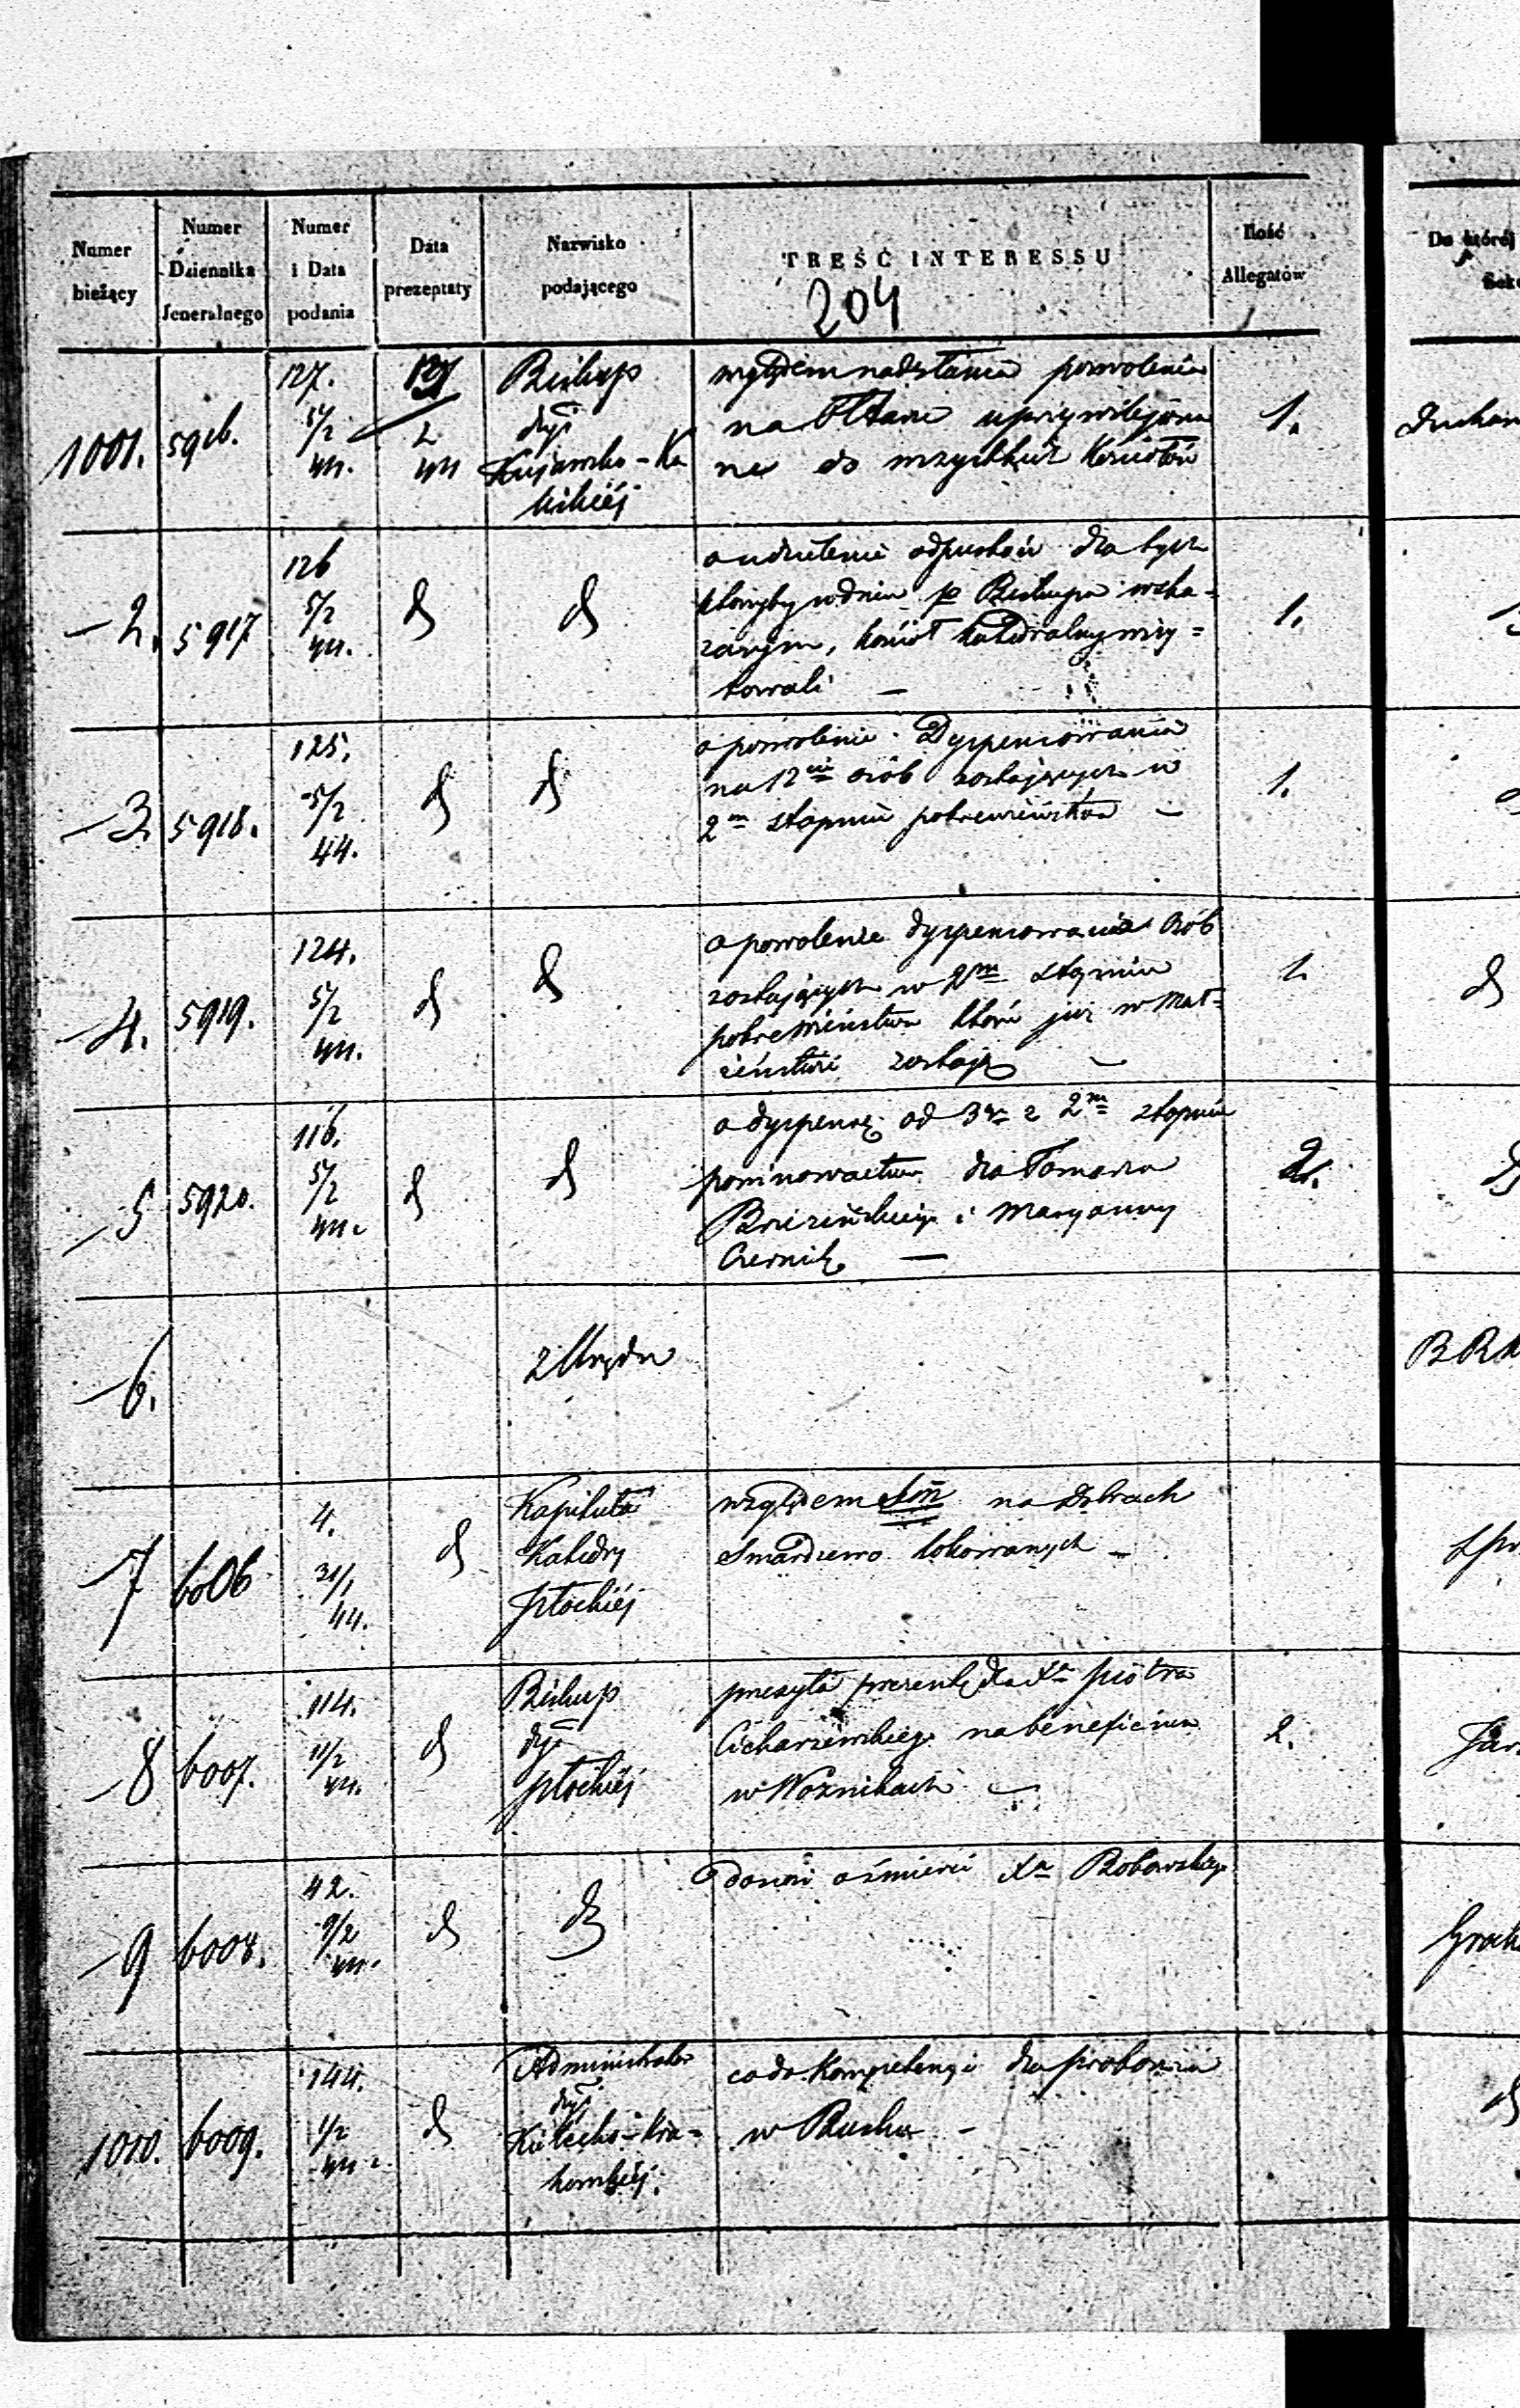 Numer bieżący
Numer Dziennika Jeneralnego
Numer i Data podania
Data prezentaty
Nazwisko podającego
TREŚĆ INTERESSU
Ilość Allegatów
Do której
204
1001. 5916. 127. 5/2 44. 12/2 44 Biskup względem nadesłania pozwolenia 1.
dyi na Ołtarze uprzywilejowa
Kujawsko-Ka ne do wszystkich Kościołów
liskiéj
-2. 5917 126 5/2 44. d d o udzielenie odpustów dla tych 1.
którzyby w dniu p Biskupa wska-
zanym, kościół katedralny wizy-
towali -
-3. 5918. 125. 5/2 44. d d o pozwolenie Dyspensowania 1.
na 12 osób zostających w
2m stopniu pokrewieństwa -
-4. 5919. 124. 5/2 44. d d o pozwolenie dyspensowania osób 1. d
zostających w 2m stopniu
pokrewieństwa które już w Mał-
żeństwie zostają -
-5 5920. 116. 5/2 44. d d o dyspensę od 3 z 2m stopnia 2.
powinowactwa dla Tomasza
Brzezińskiego i Maryanny
-
-6. z Urzędu
-7 6006 4. 31/1 44. d Kapituła względem Sum na Dobrach
Katedry Smardzewo lokowanych -
Płockiéj
-8 6007. 114. 11/2 44. d Biskup przesyła prezentę dla Xa Piotra 2.
dyi Cicharzewskiego na beneficium
Płockiéj w Woźnikach -
-9 6008. 42. 9/2 44. d d donosi o śmierci Xa Bobowskiego
1010. 6009. 144. 1/2 44. d Administrator co do Kompetencyi dla proboszcza d
dyi w Busku -
Kielecko-Kra-
kowskiéj.